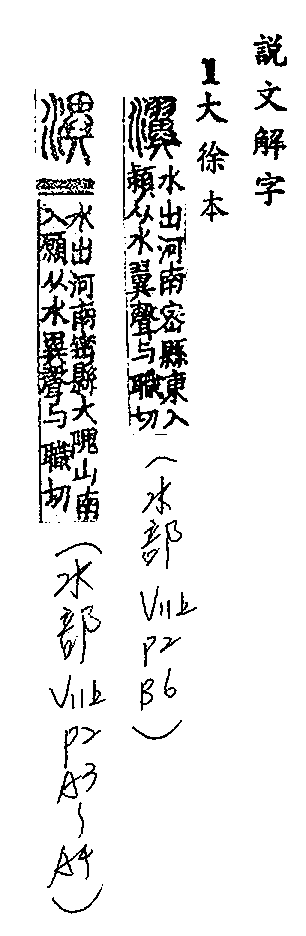 説文解字
1大徐本
瀷 水出河南密縣東入
潁从水翼聲与職切
(水部 V11上 P2 B6)
潩 水出河南密縣大隗山南
入潁从水異聲与職切
(水部 V11上 P2 A3~A4)